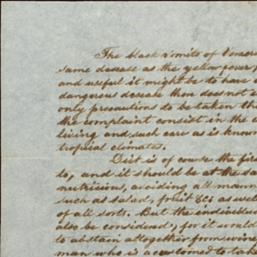 The black vomito of Vera
same disease as the yellow fever,
and useful it might be to have
dangerous decease then does not
only precautions to be taken th
the complaint consist in the
living and such care as is known
tropical climates.
Diet is of course the firs
to, and it should be at the sa
nutricious, avoiding all mann
such as salad, fruit &c as well
of all sorts. But the individu
also be considered, for it would
to abstain altogether from wine,
man who is accustomed to take